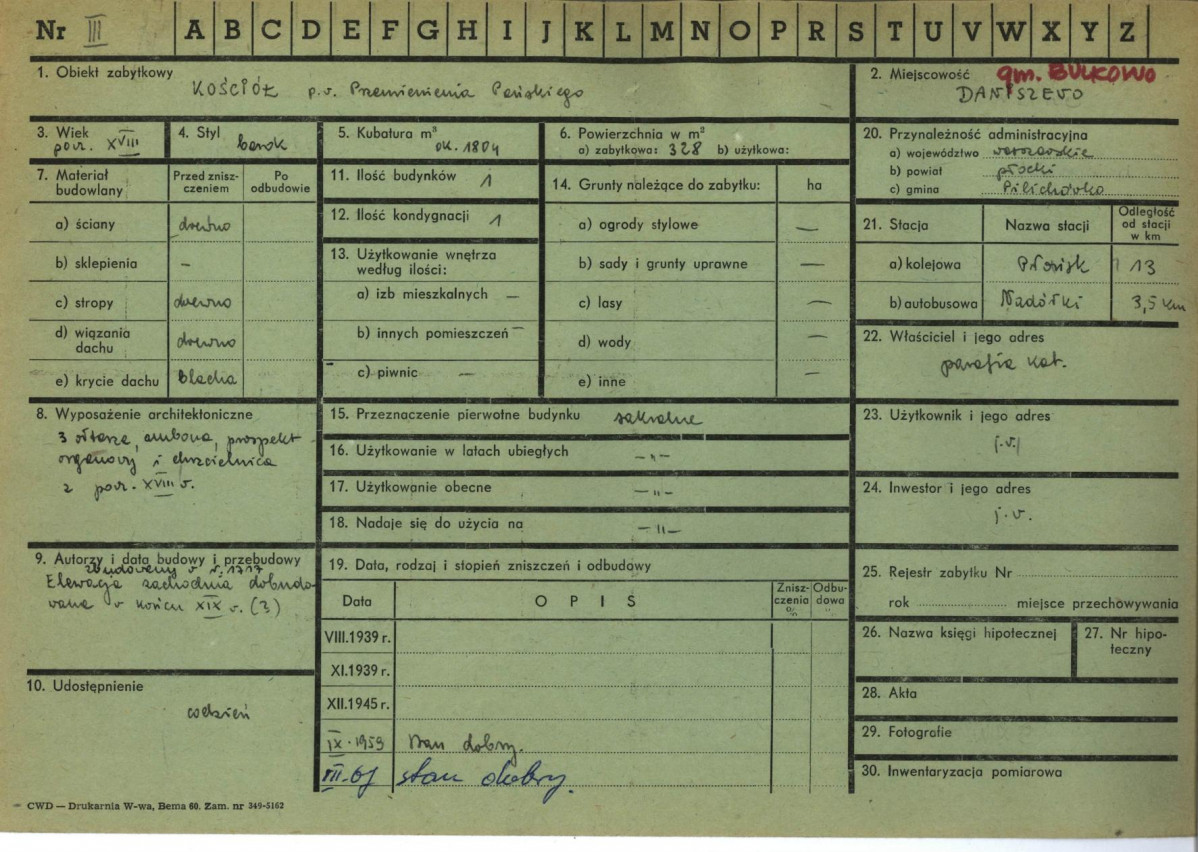 Nr III A B C D E F G H I J K L M N O P R S T U V W X Y Z
1. Obiekt zabytkowy
KOŚCIÓŁ p.w. Przemienienia Pańskiego
2. Miejscowość gm. BULKOWO
DANISZEWO
3. Wiek
pocz. XVIII
4. Styl
barok
5. Kubatura m³
ok. 1804
6. Powierzchnia w m²
a) zabytkowa: 328 b) użytkowa:
7. Materiał budowlany
Przed zniszczeniem
Po odbudowie
a) ściany drewno
b) sklepienia -
c) stropy drewno
d) wiązania dachu drewno
e) krycie dachu blacha
8. Wyposażenie architektoniczne
3 ołtarze, ambona, prospekt
organowy i chrzcielnica
z pocz. XVIII w.
9. Autorzy i data budowy i przebudowy
zbudowany w r. 1717
Elewacja zachodnia dobudo-
wana w końcu XIX w. (?)
10. Udostępnienie
codzień
11. Ilość budynków 1
12. Ilość kondygnacji 1
13. Użytkowanie wnętrza
według ilości:
a) izb mieszkalnych —
b) innych pomieszczeń —
c) piwnic —
14. Grunty należące do zabytku: ha
a) ogrody stylowe —
b) sady i grunty uprawne —
c) lasy —
d) wody —
e) inne —
15. Przeznaczenie pierwotne budynku sakralne
16. Użytkowanie w latach ubiegłych — „ —
17. Użytkowanie obecne — „ —
18. Nadaje się do użycia na — „ —
19. Data, rodzaj i stopień zniszczeń i odbudowy
Data OPIS Zniszczenia % Odbudowa %
VIII.1939 r.
XI.1939 r.
XII.1945 r.
IX.1959 Stan dobry.
VII.67 stan dobry.
20. Przynależność administracyjna
a) województwo warszawskie
b) powiat płocki
c) gmina Pilichówko
21. Stacja Nazwa stacji Odległość od stacji w km
a) kolejowa Płońsk 13
b) autobusowa Nadółki 3,5 km
22. Właściciel i jego adres
parafia kat.
23. Użytkownik i jego adres
j.w.
24. Inwestor i jego adres
j.w.
25. Rejestr zabytku Nr
rok miejsce przechowywania
26. Nazwa księgi hipotecznej
27. Nr hipoteczny
28. Akta
29. Fotografie
30. Inwentaryzacja pomiarowa
CWD — Drukarnia W-wa, Bema 60. Zam. nr 349-5162